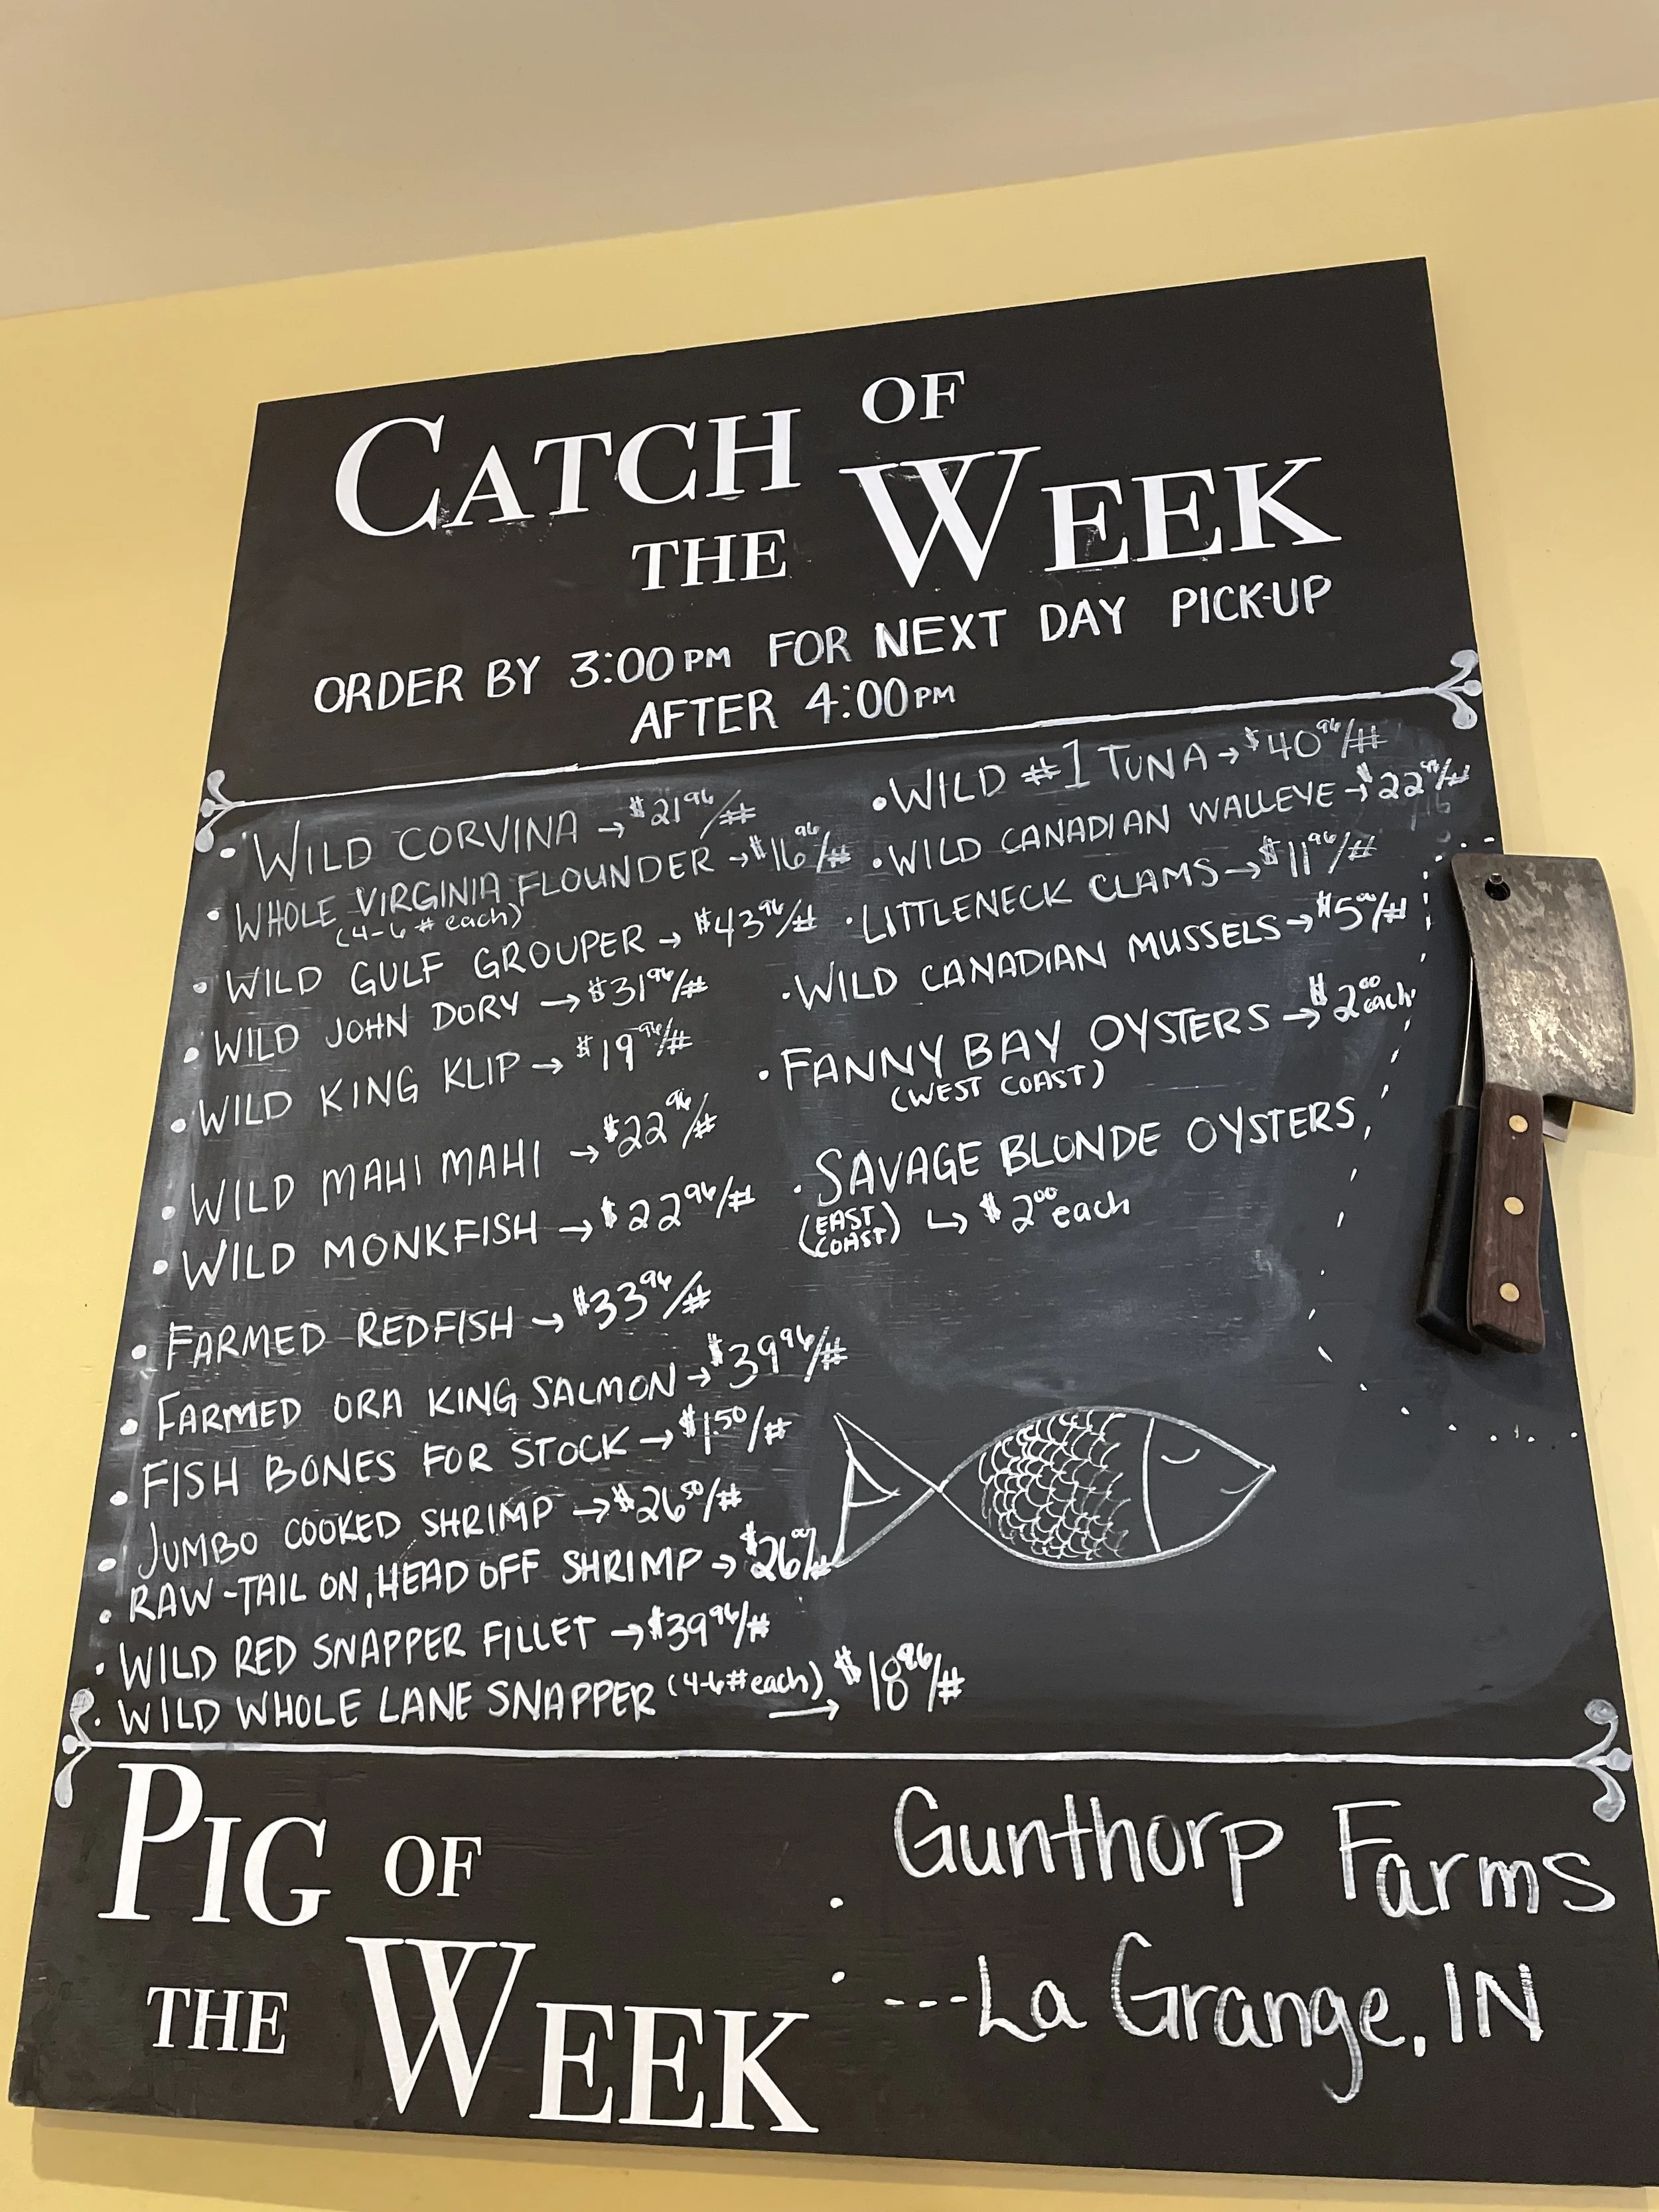 CATCH OF
THE WEEK
ORDER BY 3:00PM FOR NEXT DAY PICK-UP
AFTER 4:00PM
• WILD CORVINA → $21.96/#
• WHOLE VIRGINIA FLOUNDER → $16.96/#
(4-6# each)
• WILD GULF GROUPER → $43.96/#
• WILD JOHN DORY → $31.96/#
• WILD KING KLIP → $19.96/#
• WILD MAHI MAHI → $22.96/#
• WILD MONKFISH → $22.96/#
• FARMED REDFISH → $33.96/#
• FARMED ORA KING SALMON → $39.96/#
• FISH BONES FOR STOCK → $1.50/#
• JUMBO COOKED SHRIMP → $26.50/#
• RAW-TAIL ON, HEAD OFF SHRIMP →
• WILD RED SNAPPER FILLET → $39.96/#
• WILD WHOLE LANE SNAPPER (4-6# each) → $18.96/#
• WILD #1 TUNA → $40.96/#
• WILD CANADIAN WALLEYE →
• LITTLENECK CLAMS → $11.96/#
• WILD CANADIAN MUSSELS → $5.00/#
• FANNY BAY OYSTERS → $2.00 each
(WEST COAST)
• SAVAGE BLONDE OYSTERS
(EAST COAST) ↳ $2.00 each
PIG OF
THE WEEK :
Gunthorp Farms
---La Grange, IN